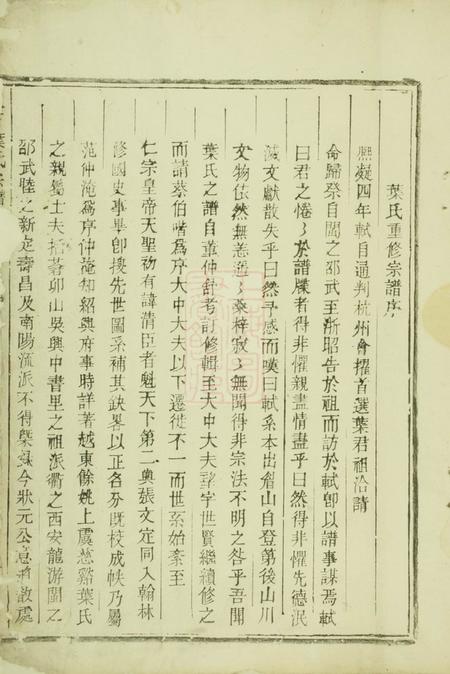 葉氏重修宗譜序
熙寧四年軾自通判杭州會擢首選葉君祖洽請
命歸祭自閩之邵武至浙昭告於祖而訪於軾卽以譜事謀焉軾
曰君之惓〻於譜牒者得非懼親盡情盡乎曰然得非懼先德泯
滅文獻散失乎曰然予感而嘆曰軾系本出眉山自登第後山川
文物依然無恙邇〻桑梓寂〻無聞得非宗法不明之咎乎吾聞
葉氏之譜自董仲舒考訂修輯至大中大夫望字世賢繼續修之
而請蔡伯喈爲序大中大夫以下遷徙不一而世系始紊至
仁宗皇帝天聖初有諱清臣者魁天下第二與張文定同入翰林
修國史事畢卽搜先世圖系補其缺畧以正名分既校成帙乃屬
范仲淹爲序仲淹知紹興府事時詳著越東餘姚上虞慈谿葉氏
之親屬士夫指蒼卯山吳興中書里之祖派衢之西安龍游閩之
邵武睦之新定壽昌及南陽流派不得槩錄今狀元公急將散處